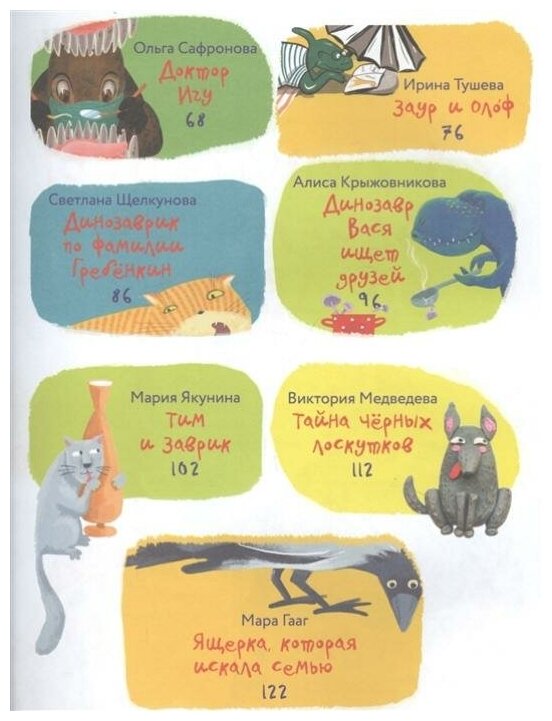 Ольга Сафронова
Доктор
Игу
68
Ирина Тушева
Заур и Олоф
76
Светлана Щелкунова
Динозаврик
по фамилии
Гребёнкин
86
Алиса Крыжовникова
Динозавр
Вася
ищет
друзей
96
Мария Якунина
Тим
и Заврик
102
Виктория Медведева
Тайна чёрных
лоскутков
112
Мара Гааг
Ящерка, которая
искала семью
122